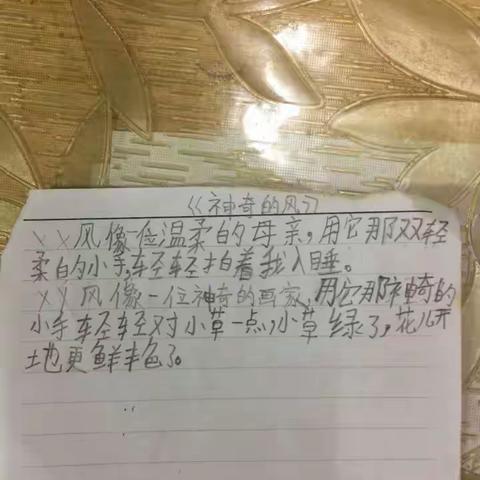 《神奇的风》
××风像一位温柔的母亲,用它那双轻
柔的小手,轻轻拍着我入睡。
××风像一位神奇的画家,用它那神奇的
小手轻轻对小草一点,小草绿了,花儿开
地更鲜丰色了。